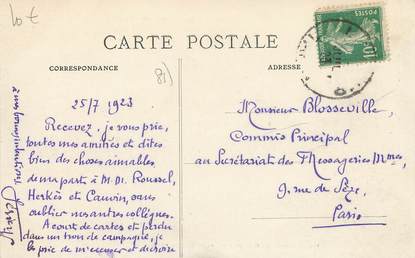 10 €
CARTE POSTALE
CORRESPONDANCE
ADRESSE
81)
25/7 1923
Recevez, je vous prie,
toutes mes amitiés et dites
bien des choses aimables
de ma part à M.M. Roussel,
Herkès et Cauvin, sans
oublier nos autres collègues.
À court de cartes et perdu
dans un trou de campagne, je
vous prie de m'excuser et de croire
à mes
Monsieur Blosseville,
Commis Principal
au Secrétariat des Messageries Mmes,
9, rue de Sèze,
Paris